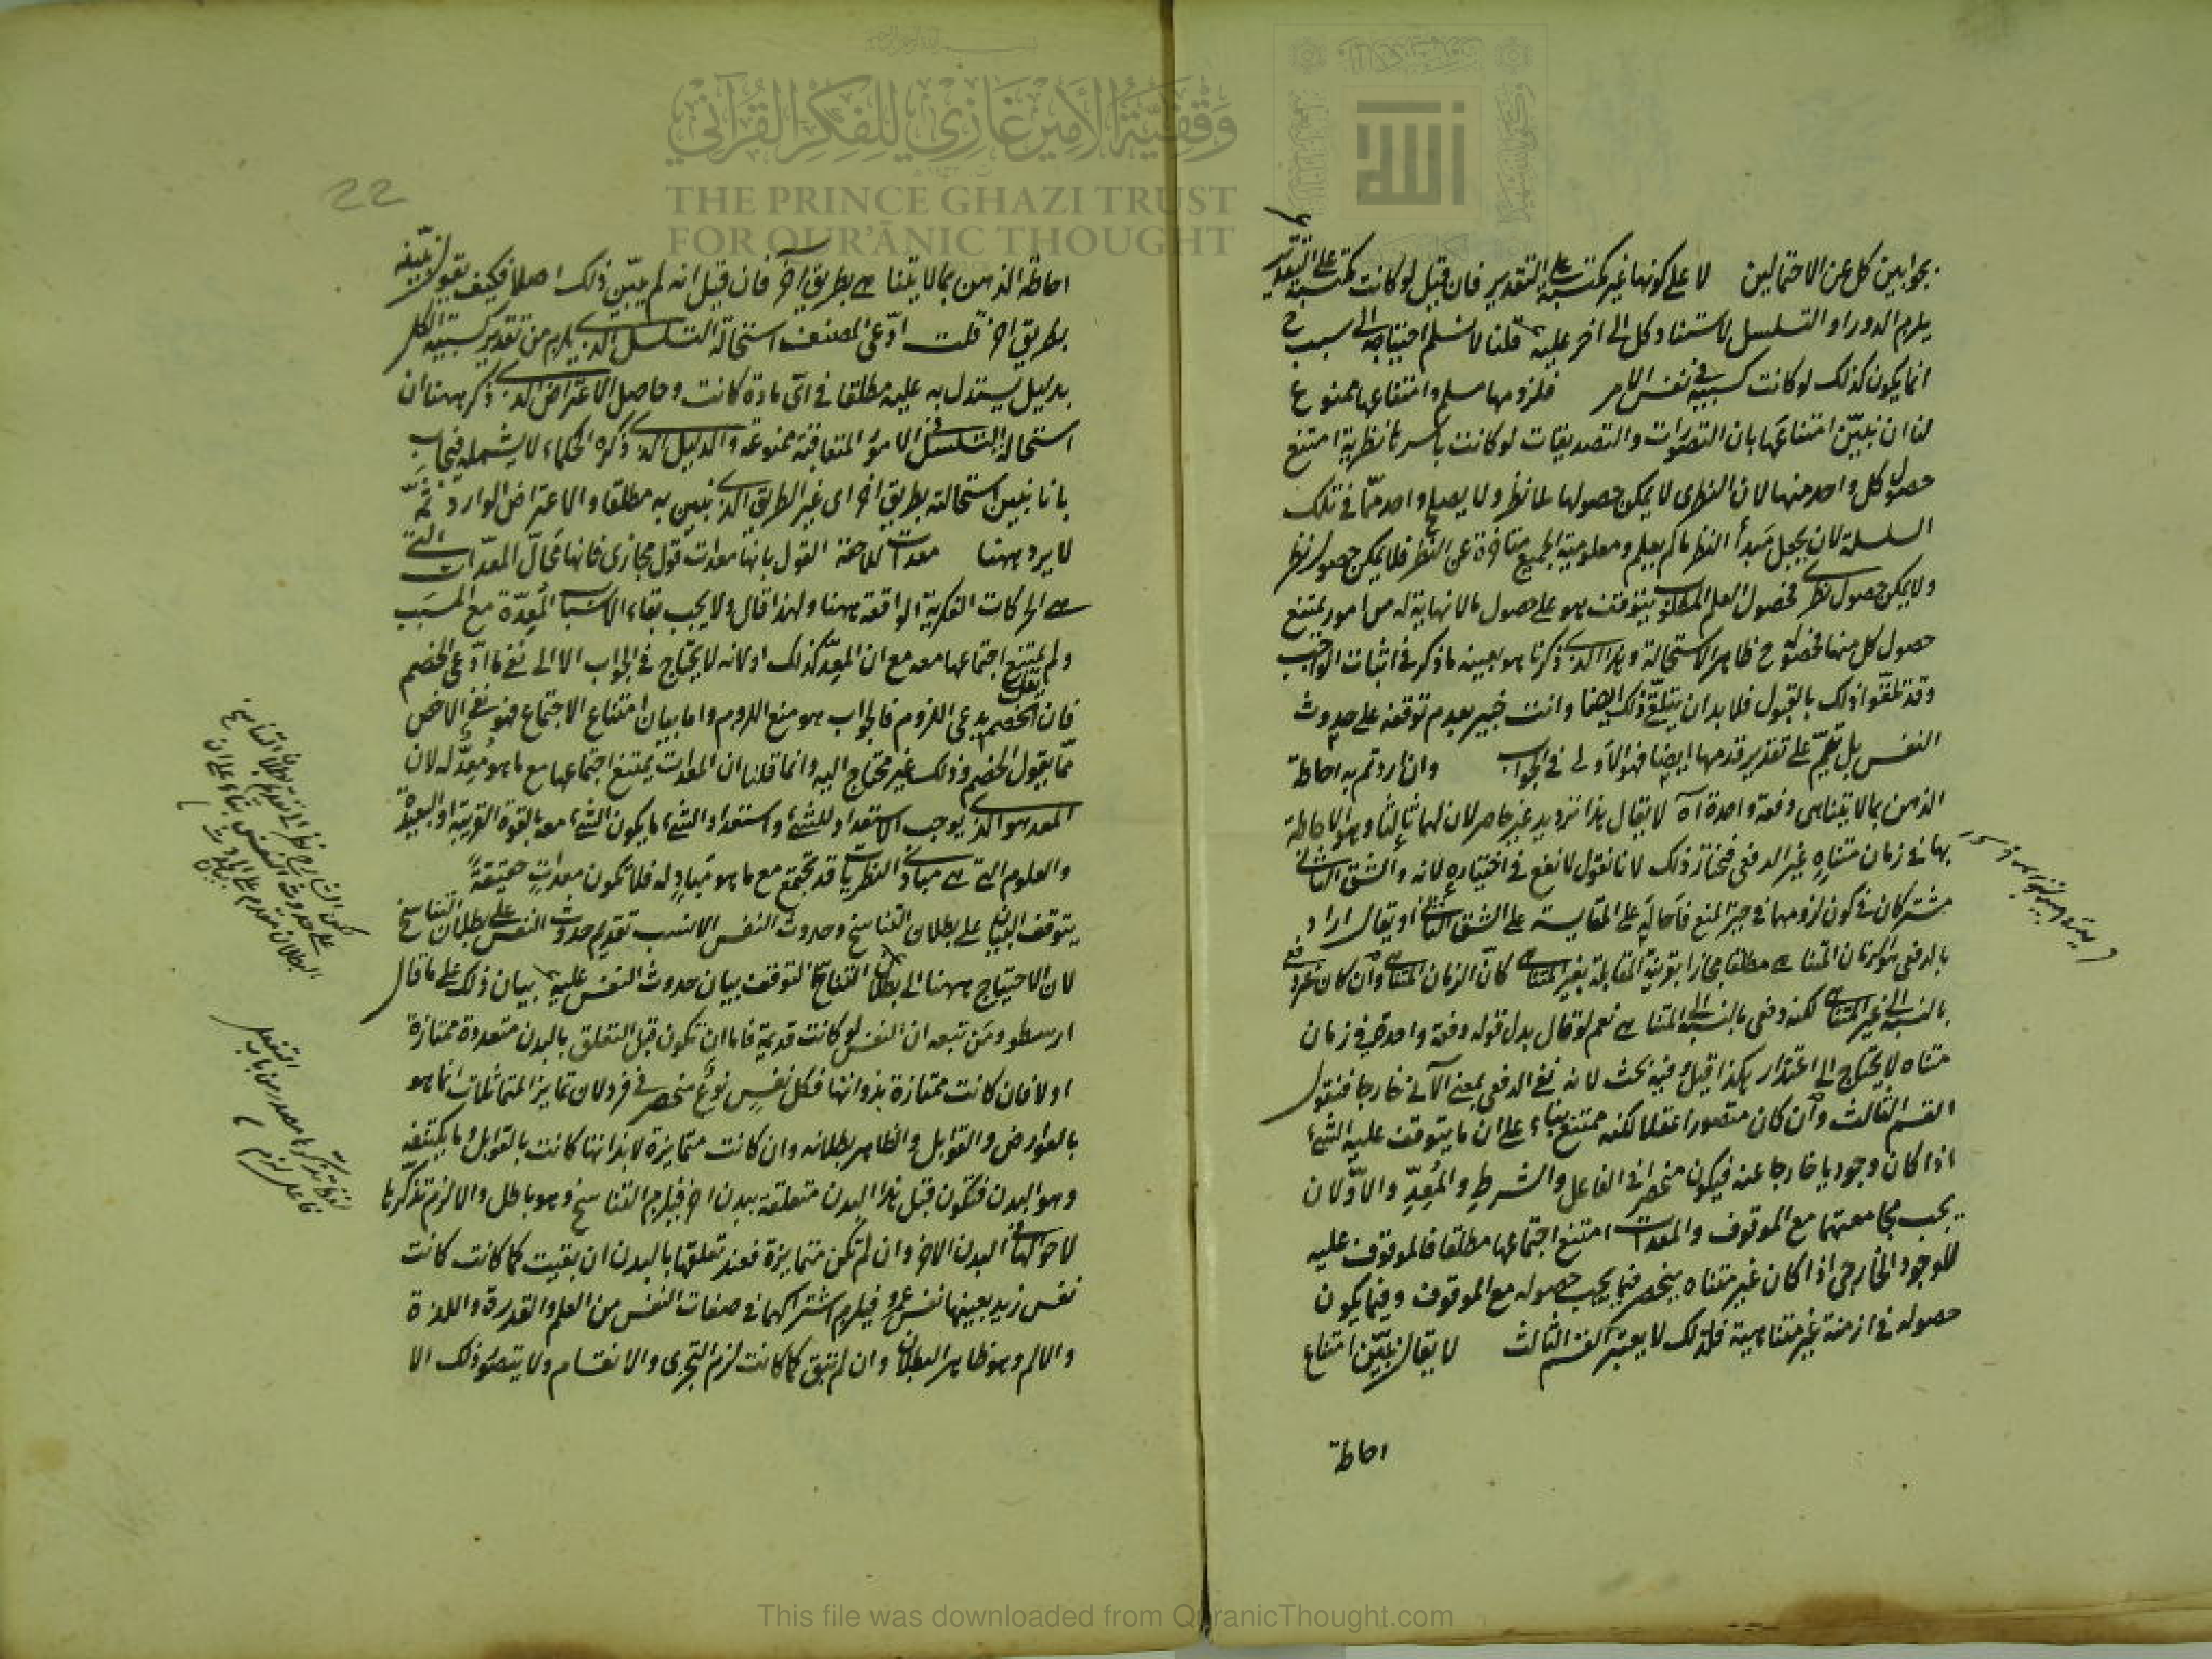 وقفية الأمير غازي للفكر القرآني
THE PRINCE GHAZI TRUST
FOR QUR'ĀNIC THOUGHT
الله
بجوابين كل عن الاحتمالين لا على كونها غير مكتسبة على التقدير فان قيل لو كانت مكتسبة على التقدير
يلزم الدور او التسلسل لاستناد كل الى اخر عليه قلنا لا نسلم احتياجه الى سبب ح
انما يكون كذلك لو كانت كسبية في نفس الامر فلزومها مسلم وامتناعها ممنوع
لنا ان نبيّن امتناعها بان التصورات والتصديقات لو كانت باسرها نظرية امتنع
حصول كل واحد منها لان النظرى لا يمكن حصوله بلا نظر ولا يصلح واحد ممّا في تلك
السلسلة لان يجعل مبدأ النظر ما لم يعلم ومعلومية الجميع متأخرة عن النظر فلا يمكن حصول نظر
ولا يمكن حصول نظرى فحصول العلم المطلوب يتوقف هو على حصول ما لا نهاية له من امور يمتنع
حصول كل منها فحصوله ح ظاهر الاستحالة وهذا الذى ذكرنا هو بعينه ما ذكر في اثبات الواجب
وقد تلقّوا ذلك بالقبول فلا بد ان يتلقّى ذلك ايضا وانت خبير بعدم توقفه على حدوث
النفس بل يتم على تقدير قدمها ايضا فهو الاولى في الجواب وان اردتم به احاطة
الذهن بما لا يتناهى دفعة واحدة آه لا يقال هذا ترديد غير حاصر لان لهما ثالثا وهو الاحاطة
بها في زمان متناه غير الدفعى فنختار ذلك لانا نقول لا نفع في اختياره لانه والشق الثانى
مشتركان في كون لزومها في حيز المنع فأحاله على المقايسة على الشق الثانى او يقال اراد
بالدفعى هو الزمان المتناهى مطلقا مجازا بقرينة المقابلة بغير المتناهى كأن الزمان المتناهى وان كان غير دفعى
بالنسبة الى غير المتناهى لكنه دفعى بالنسبة الى المتناهى نعم لو قال بدل قوله دفعة واحدة في زمان
متناه لا يحتاج الى اعتذار هكذا قيل وفيه بحث لانه نفى الدفعى بمعنى الآنى خارجا فنقول
القسم الثالث وان كان متصورا عقلا لكنه ممتنع بناء على ان ما يتوقف عليه الشئ
اذا كان وجوديا خارجا عنه فيكون منحصرا في الفاعل والشرط والمعدّ والاوّلان
يجب مجامعتهما مع الموقوف والمعدات امتنع اجتماعها مطلقا فالموقوف عليه
للوجود الخارجى اذا كان غير متناه ينحصر فيما يجب حصوله مع الموقوف وفيما يكون
حصوله في ازمنة غير متناهية فلذلك لا يعتبر القسم الثالث لا يقال نبيّن امتناع
احاطة
22
احاطة الذهن بما لا يتناهى بطريق آخر فان قيل انه لم يبيّن ذلك اصلا فكيف يقول نبيّنه
بطريق اخر قلت ادّعى المصنف استحالة التسلسل الذى يلزم من تقدير كسبية الكل
بدليل يستدل به عليه مطلقا في اى مادة كانت وحاصل الاعتراض الذى ذكر ههنا ان
استحالة التسلسل في الامور المتعاقبة ممنوعة والدليل الذى ذكره الحكماء لا يشمله فيجاب
بانا نبين استحالته بطريق اخر اى غير الطريق الذى نبين به مطلقا والاعتراض الوارد ثمّه
لا يرد ههنا معدات للاحقة القول بانها معدات قول مجازى فانها محالّ المعدّات التى
هى الحركات الفكرية الواقعة ههنا ولهذا قال ولا يجب بقاء الاسباب المُعِدّة مع المسبب
ولم يمتنع اجتماعها معه مع ان المعدّ كذلك او لانه لا يحتاج في الجواب الا الى نفى ما ادّعى الخصم
فان الخصم يدعى اللزوم فالجواب هو منع اللزوم واما بيان امتناع الاجتماع فهو نفى الاخص
ممّا يقول الخصم وذلك غير محتاج اليه وانما قلنا ان المعدات يمتنع اجتماعها مع ما هو مُعِدّ له لان
المعد هو الذى يوجب الاستعداد للشئ واستعداد الشئ ما يكون الشئ معه بالقوة القريبة او البعيدة
والعلوم التى هى مبادى النظريات قد تجتمع مع ما هو مبادٍ له فلا تكون معدات حقيقةً
يتوقف البيان على بطلان التناسخ وحدوث النفس الانسب تقديم حدوث النفس على بطلان التناسخ
لان الاحتياج ههنا الى بطلان التناسخ لتوقف بيان حدوث النفس عليه بيان ذلك على ما قال
ارسطو ومَن تبعه ان النفس لو كانت قديمة فاما ان تكون قبل التعلق بالبدن متعددة ممتازة
اولا فان كانت ممتازة بذواتها فكل نفس نوع منحصر في فرد لان تمايز المتماثلات انما هو
بالعوارض والقوابل والظاهر بطلانه وان كانت متمايزة لا بذاتها كانت بالقوابل وما يكتنفه
وهو البدن فتكون قبل هذا البدن متعلقة ببدن اخر فيلزم التناسخ وهو باطل والا لزم تذكّرها
لاحوالها في البدن الاخر وان لم تكن متمايزة فعند تعلقها بالبدن ان بقيت كما كانت كانت
نفس زيد بعينها نفس عمرو فيلزم اشتراكهما في صفات النفس من العلم والقدرة واللذة
والالم وهو ظاهر البطلان وان لم تبق كما كانت لزم التجزى والانقسام ولا يتصور ذلك الا
This file was downloaded from QuranicThought.com